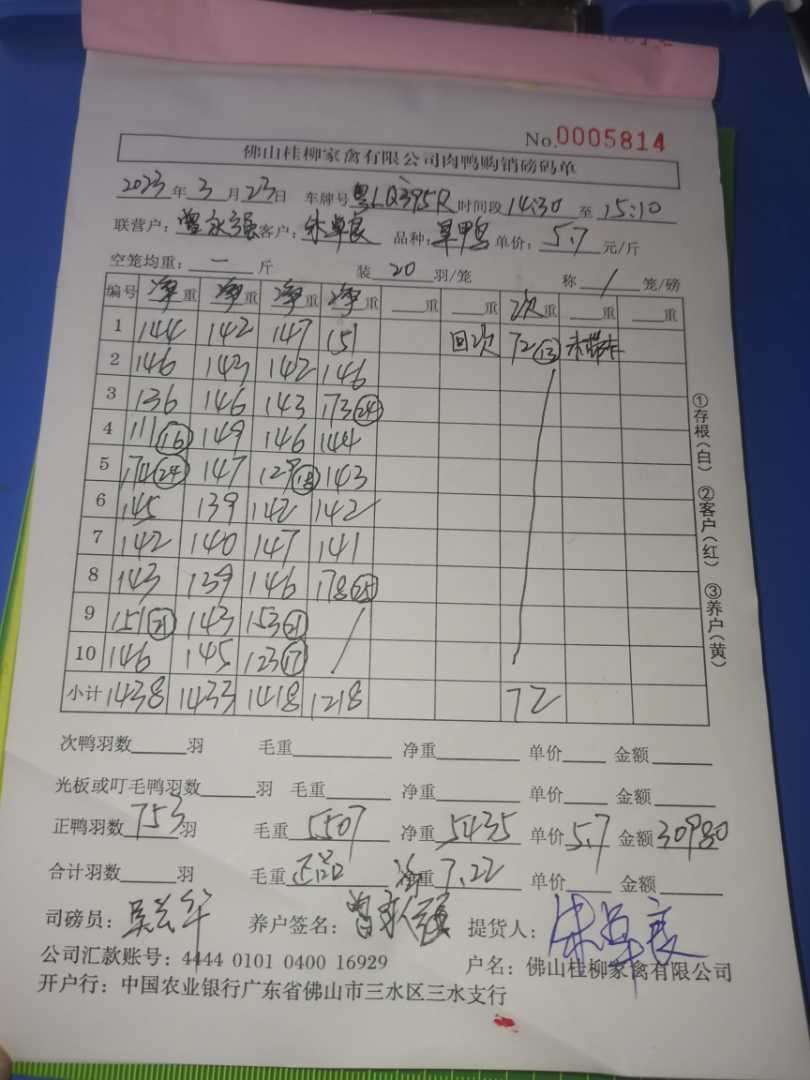 No.0005814
佛山桂柳家禽有限公司肉鸭购销磅码单
2023年3月23日 车牌号粤LQ395R时间段14:30至15:10
联营户:曾永强客户:朱卓良 品种:草鸭单价:5.7元/斤
空笼均重:一斤 装20羽/笼 称1笼/磅
编号 净重 净重 净重 净重 重 重 次重 重 重
1 144 142 147 151 回次 72⑬
2 146 143 142 146
3 136 146 143 173㉔
4 111⑯ 149 146 144
5 170㉔ 147 129⑱ 143
6 145 139 142 142
7 142 140 147 141
8 143 139 146 178㉕
9 151㉑ 143 153㉑
10 146 145 123⑰
小计 1438 1433 1418 1218 72
①存根(白) ②客户(红) ③养户(黄)
次鸭羽数 羽 毛重 净重 单价 金额
光板或叮毛鸭羽数 羽 毛重 净重 单价 金额
正鸭羽数753羽 毛重5507 净重5435 单价5.7 金额30980
合计羽数 羽 毛重正品 净重7.22 单价 金额
司磅员:吴云华 养户签名:曾永强 提货人:朱卓良
公司汇款账号:4444 0101 0400 16929 户名:佛山桂柳家禽有限公司
开户行:中国农业银行广东省佛山市三水区三水支行